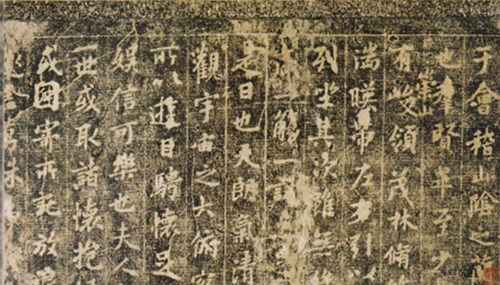 于會稽山陰之
也羣賢畢至少
崇山
有峻領茂林脩
湍暎帶左右引以
列坐其次雖無絲
一觴一詠
是日也天朗氣清
觀宇宙之大俯察
所以遊目騁懷足
娛信可樂也夫人
一世或取諸懷抱
或因寄所託放浪